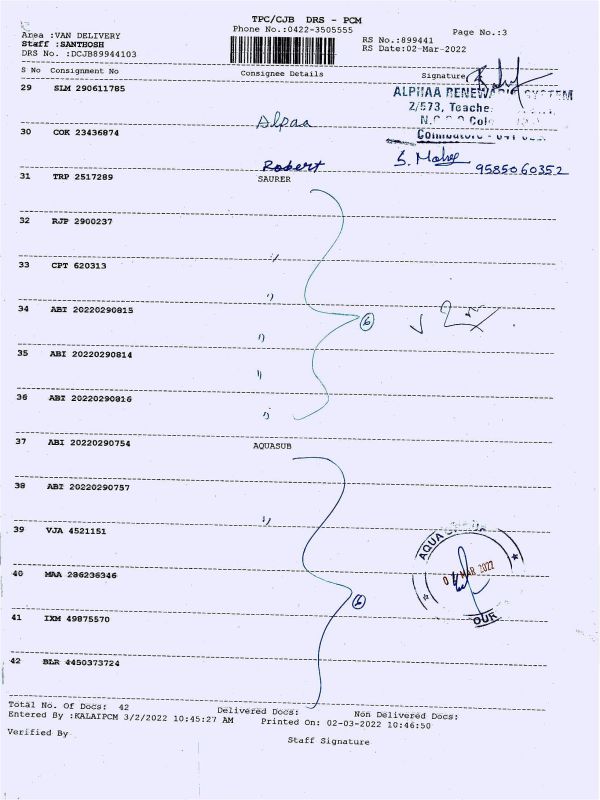 TPC/CJB DRS - PCM
Area :VAN DELIVERY
Phone No.:0422-3505555
Page No.:3
Staff :SANTHOSH
RS No.:899441
DRS No. :DCJB89944103
RS Date:02-Mar-2022
S No Consignment No Consignee Details Signature
29 SLM 290611785
ALPHAA RENEW SYSTEM
2/573, Teache
30 COK 23436874 Alpaa
Coimbatore - 641
S. 9585060352
Robert
31 TRP 2517289 SAURER
32 RJP 2900237
33 CPT 620313
34 ABI 20220290815
6
35 ABI 20220290814
36 ABI 20220290816
37 ABI 20220290754 AQUASUB
38 ABI 20220290757
39 VJA 4521151
AQUA
MAR 2022
40 MAA 286236346
6
41 IXM 49875570
OUR
42 BLR 4450373724
Total No. Of Docs: 42 Delivered Docs: Non Delivered Docs:
Entered By :KALAIPCM 3/2/2022 10:45:27 AM Printed On: 02-03-2022 10:46:50
Verified By
Staff Signature